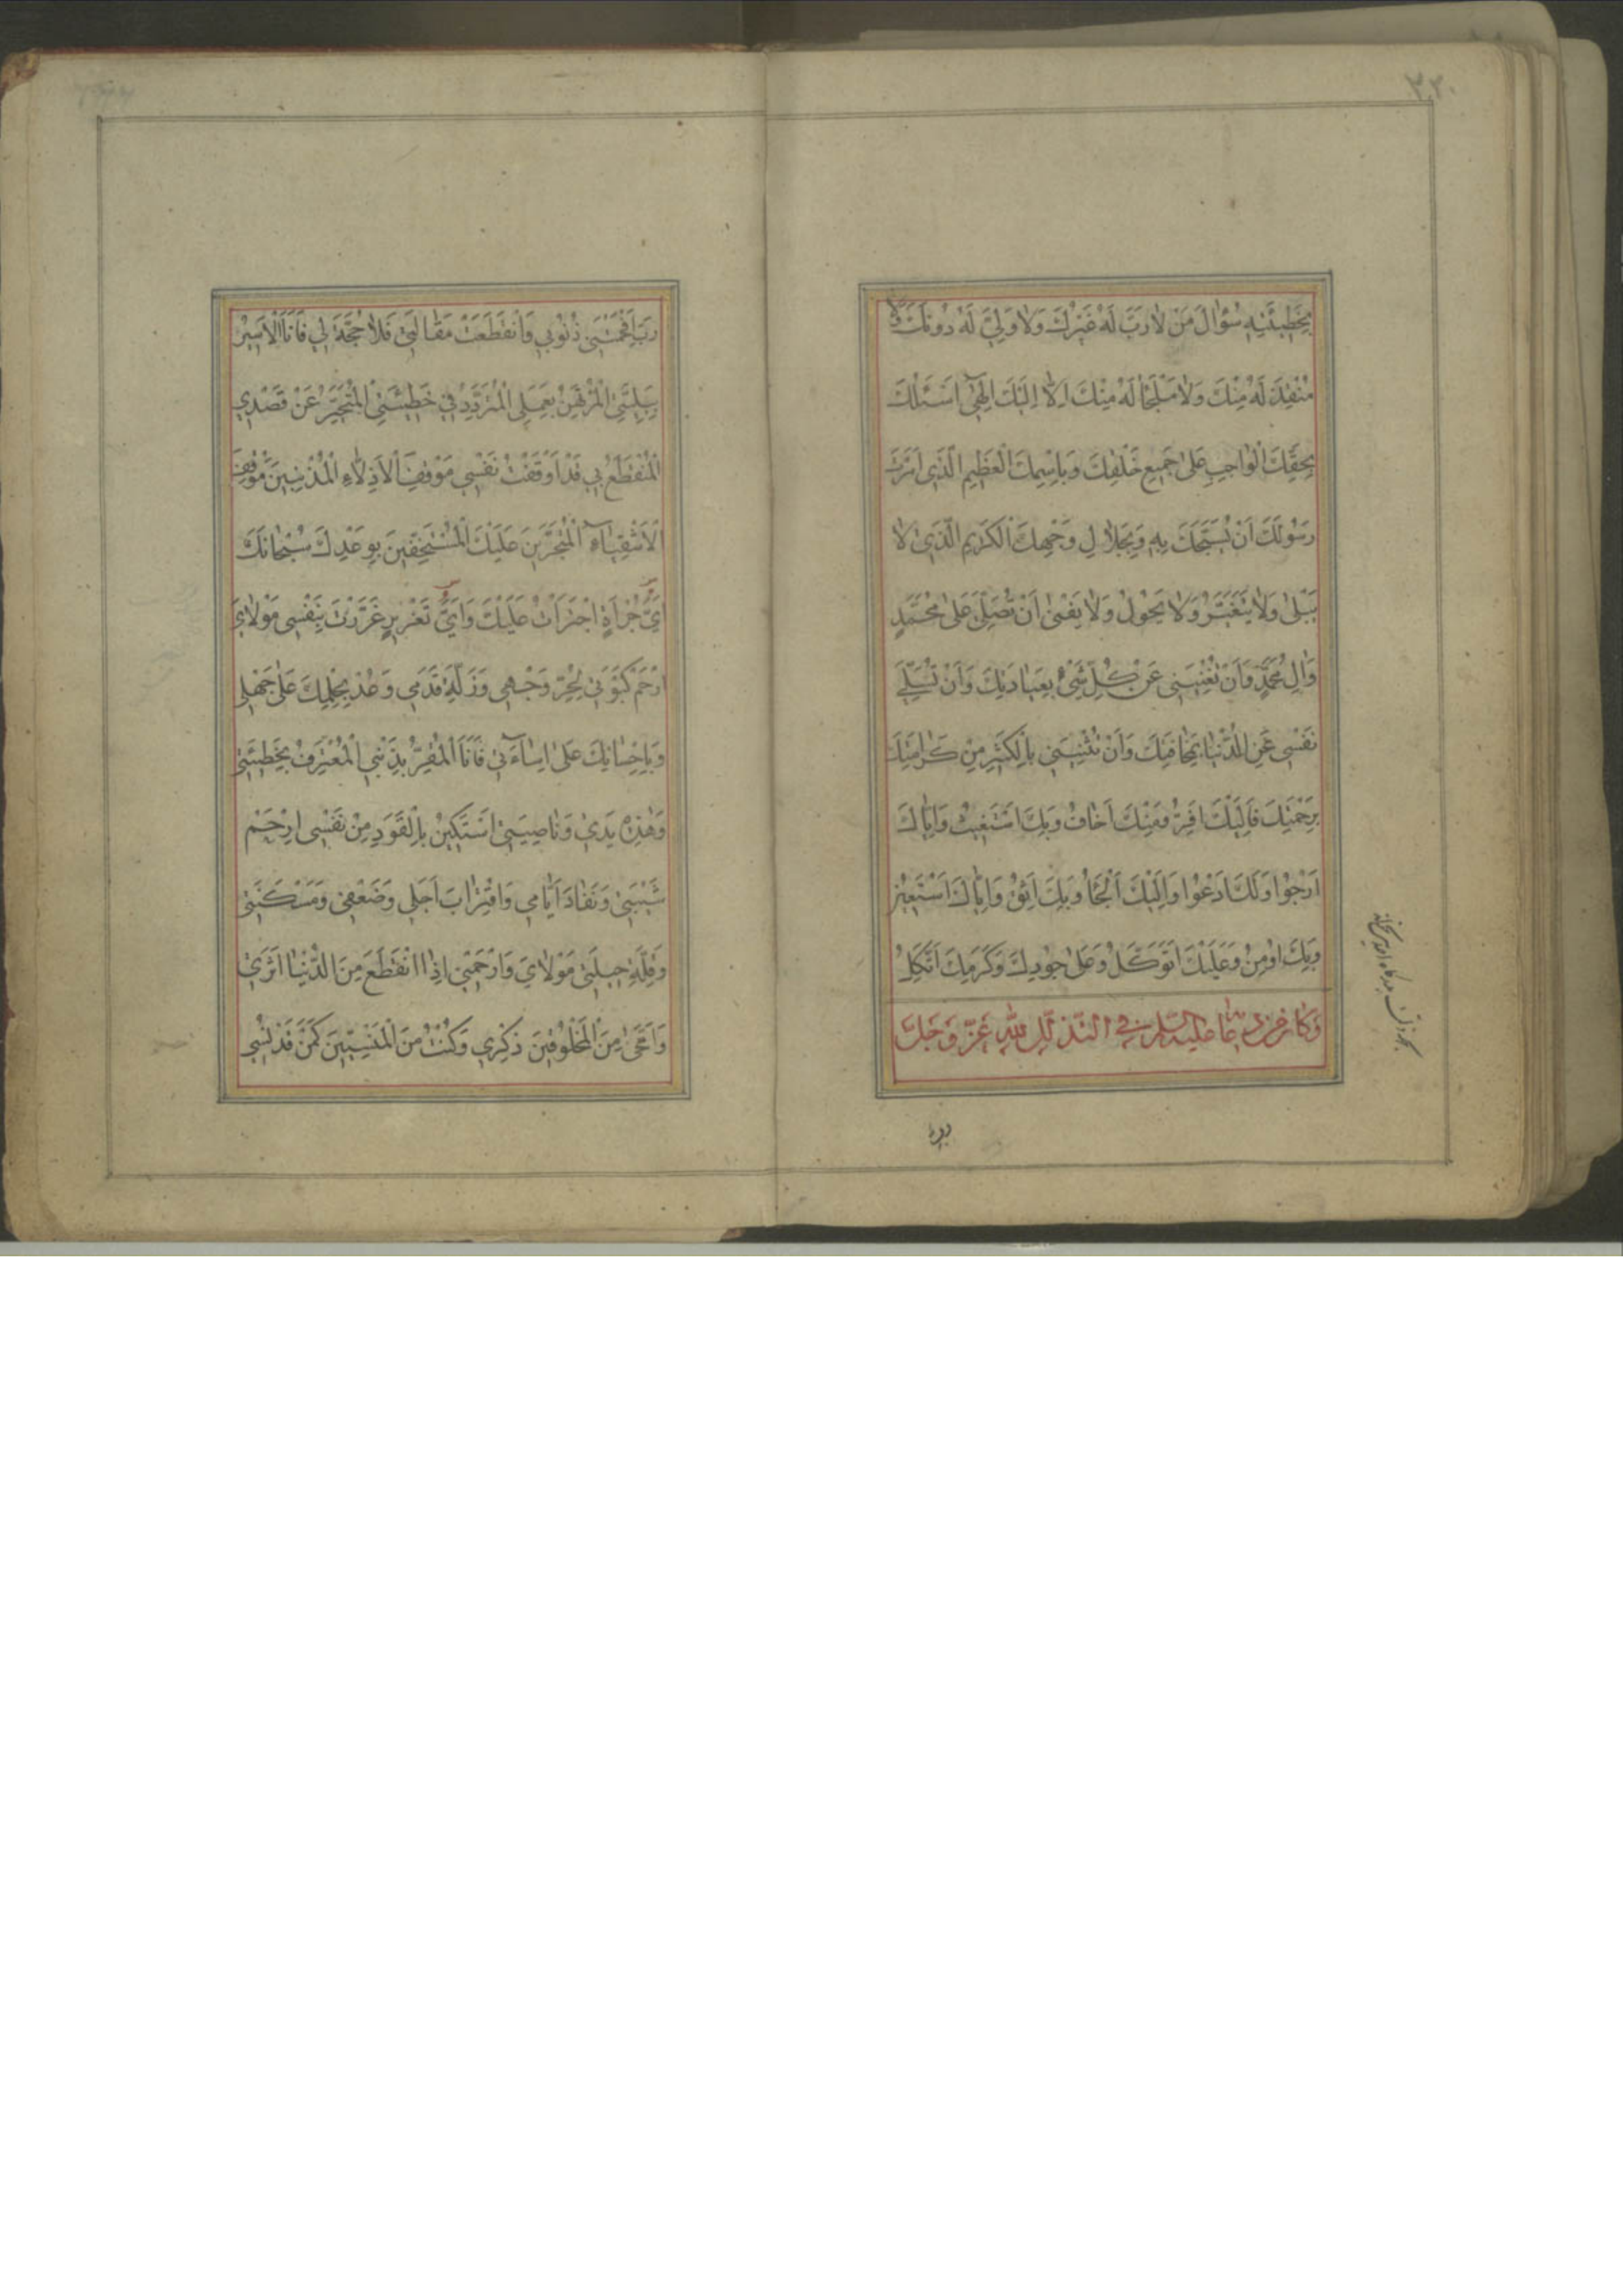 ٣٢٠
بِخَطِيئَتِهِ سُؤٰالَ مَنْ لاٰ رَبَّ لَهُ غَيْرُكَ وَلاٰ وَلِيَّ لَهُ دُونَكَ وَلاٰ
مُنْقِذَ لَهُ مِنْكَ وَلاٰ مَلْجَأَ لَهُ مِنْكَ اِلاّٰ اِلَيْكَ اِلٰهِي اَسْئَلُكَ
بِحَقِّكَ الْوٰاجِبِ عَلىٰ جَمِيعِ خَلْقِكَ وَبِاسْمِكَ الْعَظِيمِ الَّذِي اَمَرْتَ
رَسُولَكَ اَنْ يُسَبِّحَكَ بِهِ وَبِجَلاٰلِ وَجْهِكَ الْكَرِيمِ الَّذِي لاٰ
يَبْلىٰ وَلاٰ يَتَغَيَّرُ وَلاٰ يَحُولُ وَلاٰ يَفْنىٰ اَنْ تُصَلِّيَ عَلىٰ مُحَمَّدٍ
وَاٰلِ مُحَمَّدٍ وَاَنْ تُغْنِيَنِي عَنْ كُلِّ شَيْءٍ بِعِبٰادَتِكَ وَاَنْ تُسَلِّيَ
نَفْسِي عَنِ الدُّنْيٰا بِمَخٰافَتِكَ وَاَنْ تُثْنِيَنِي بِالْكَثِيرِ مِنْ كَرٰامَتِكَ
بِرَحْمَتِكَ فَاِلَيْكَ اَفِرُّ وَمِنْكَ اَخٰافُ وَبِكَ اَسْتَغِيثُ وَاِيّٰاكَ
اَرْجُوا وَلَكَ اَدْعُوا وَاِلَيْكَ اَلْجَأُ وَبِكَ اَثِقُ وَاِيّٰاكَ اَسْتَعِينُ
وَبِكَ اُومِنُ وَعَلَيْكَ اَتَوَكَّلُ وَعَلىٰ جُودِكَ وَكَرَمِكَ اَتَّكِلُ
وَكٰانَ مِنْ دُعٰائِهِ عَلَيْهِ السَّلٰمُ فِي التَّذَلُّلِ لِلّٰهِ عَزَّ وَجَلَّ
رَبِّ اَفْحَمَتْنِي ذُنُوبِي وَانْقَطَعَتْ مَقٰالَتِي فَلاٰ حُجَّةَ لِي فَاَنَا الْاَسِيرُ
بِبَلِيَّتِي الْمُرْتَهَنُ بِعَمَلِي الْمُتَرَدِّدُ فِي خَطِيئَتِي الْمُتَحَيِّرُ عَنْ قَصْدِي
الْمُنْقَطَعُ بِي قَدْ اَوْقَفْتُ نَفْسِي مَوْقِفَ الْاَذِلاّٰءِ الْمُذْنِبِينَ مَوْقِفَ
الْاَشْقِيٰاءِ الْمُتَجَرِّينَ عَلَيْكَ الْمُسْتَخِفِّينَ بِوَعْدِكَ سُبْحٰانَكَ
اَيَّ جُرْأَةٍ اجْتَرَأْتُ عَلَيْكَ وَاَيَّ تَغْرِيرٍ غَرَّرْتُ بِنَفْسِي مَوْلاٰيَ
ارْحَمْ كَبْوَتِي لِحُرِّ وَجْهِي وَزَلَّةَ قَدَمِي وَعُدْ بِحِلْمِكَ عَلىٰ جَهْلِي
وَبِاِحْسٰانِكَ عَلىٰ اِسٰاءَتِي فَاَنَا الْمُقِرُّ بِذَنْبِي الْمُعْتَرِفُ بِخَطِيئَتِي
وَهٰذِهِ يَدِي وَنٰاصِيَتِي اَسْتَكِينُ بِالْقَوَدِ مِنْ نَفْسِي ارْحَمْ
شَيْبَتِي وَنَفٰادَ اَيّٰامِي وَاقْتِرٰابَ اَجَلِي وَضَعْفِي وَمَسْكَنَتِي
وَقِلَّةَ حِيلَتِي مَوْلاٰيَ وَارْحَمْنِي اِذَا انْقَطَعَ مِنَ الدُّنْيٰا اَثَرِي
وَامَّحىٰ مِنَ الْمَخْلُوقِينَ ذِكْرِي وَكُنْتُ مِنَ الْمَنْسِيِّينَ كَمَنْ قَدْ نُسِيَ